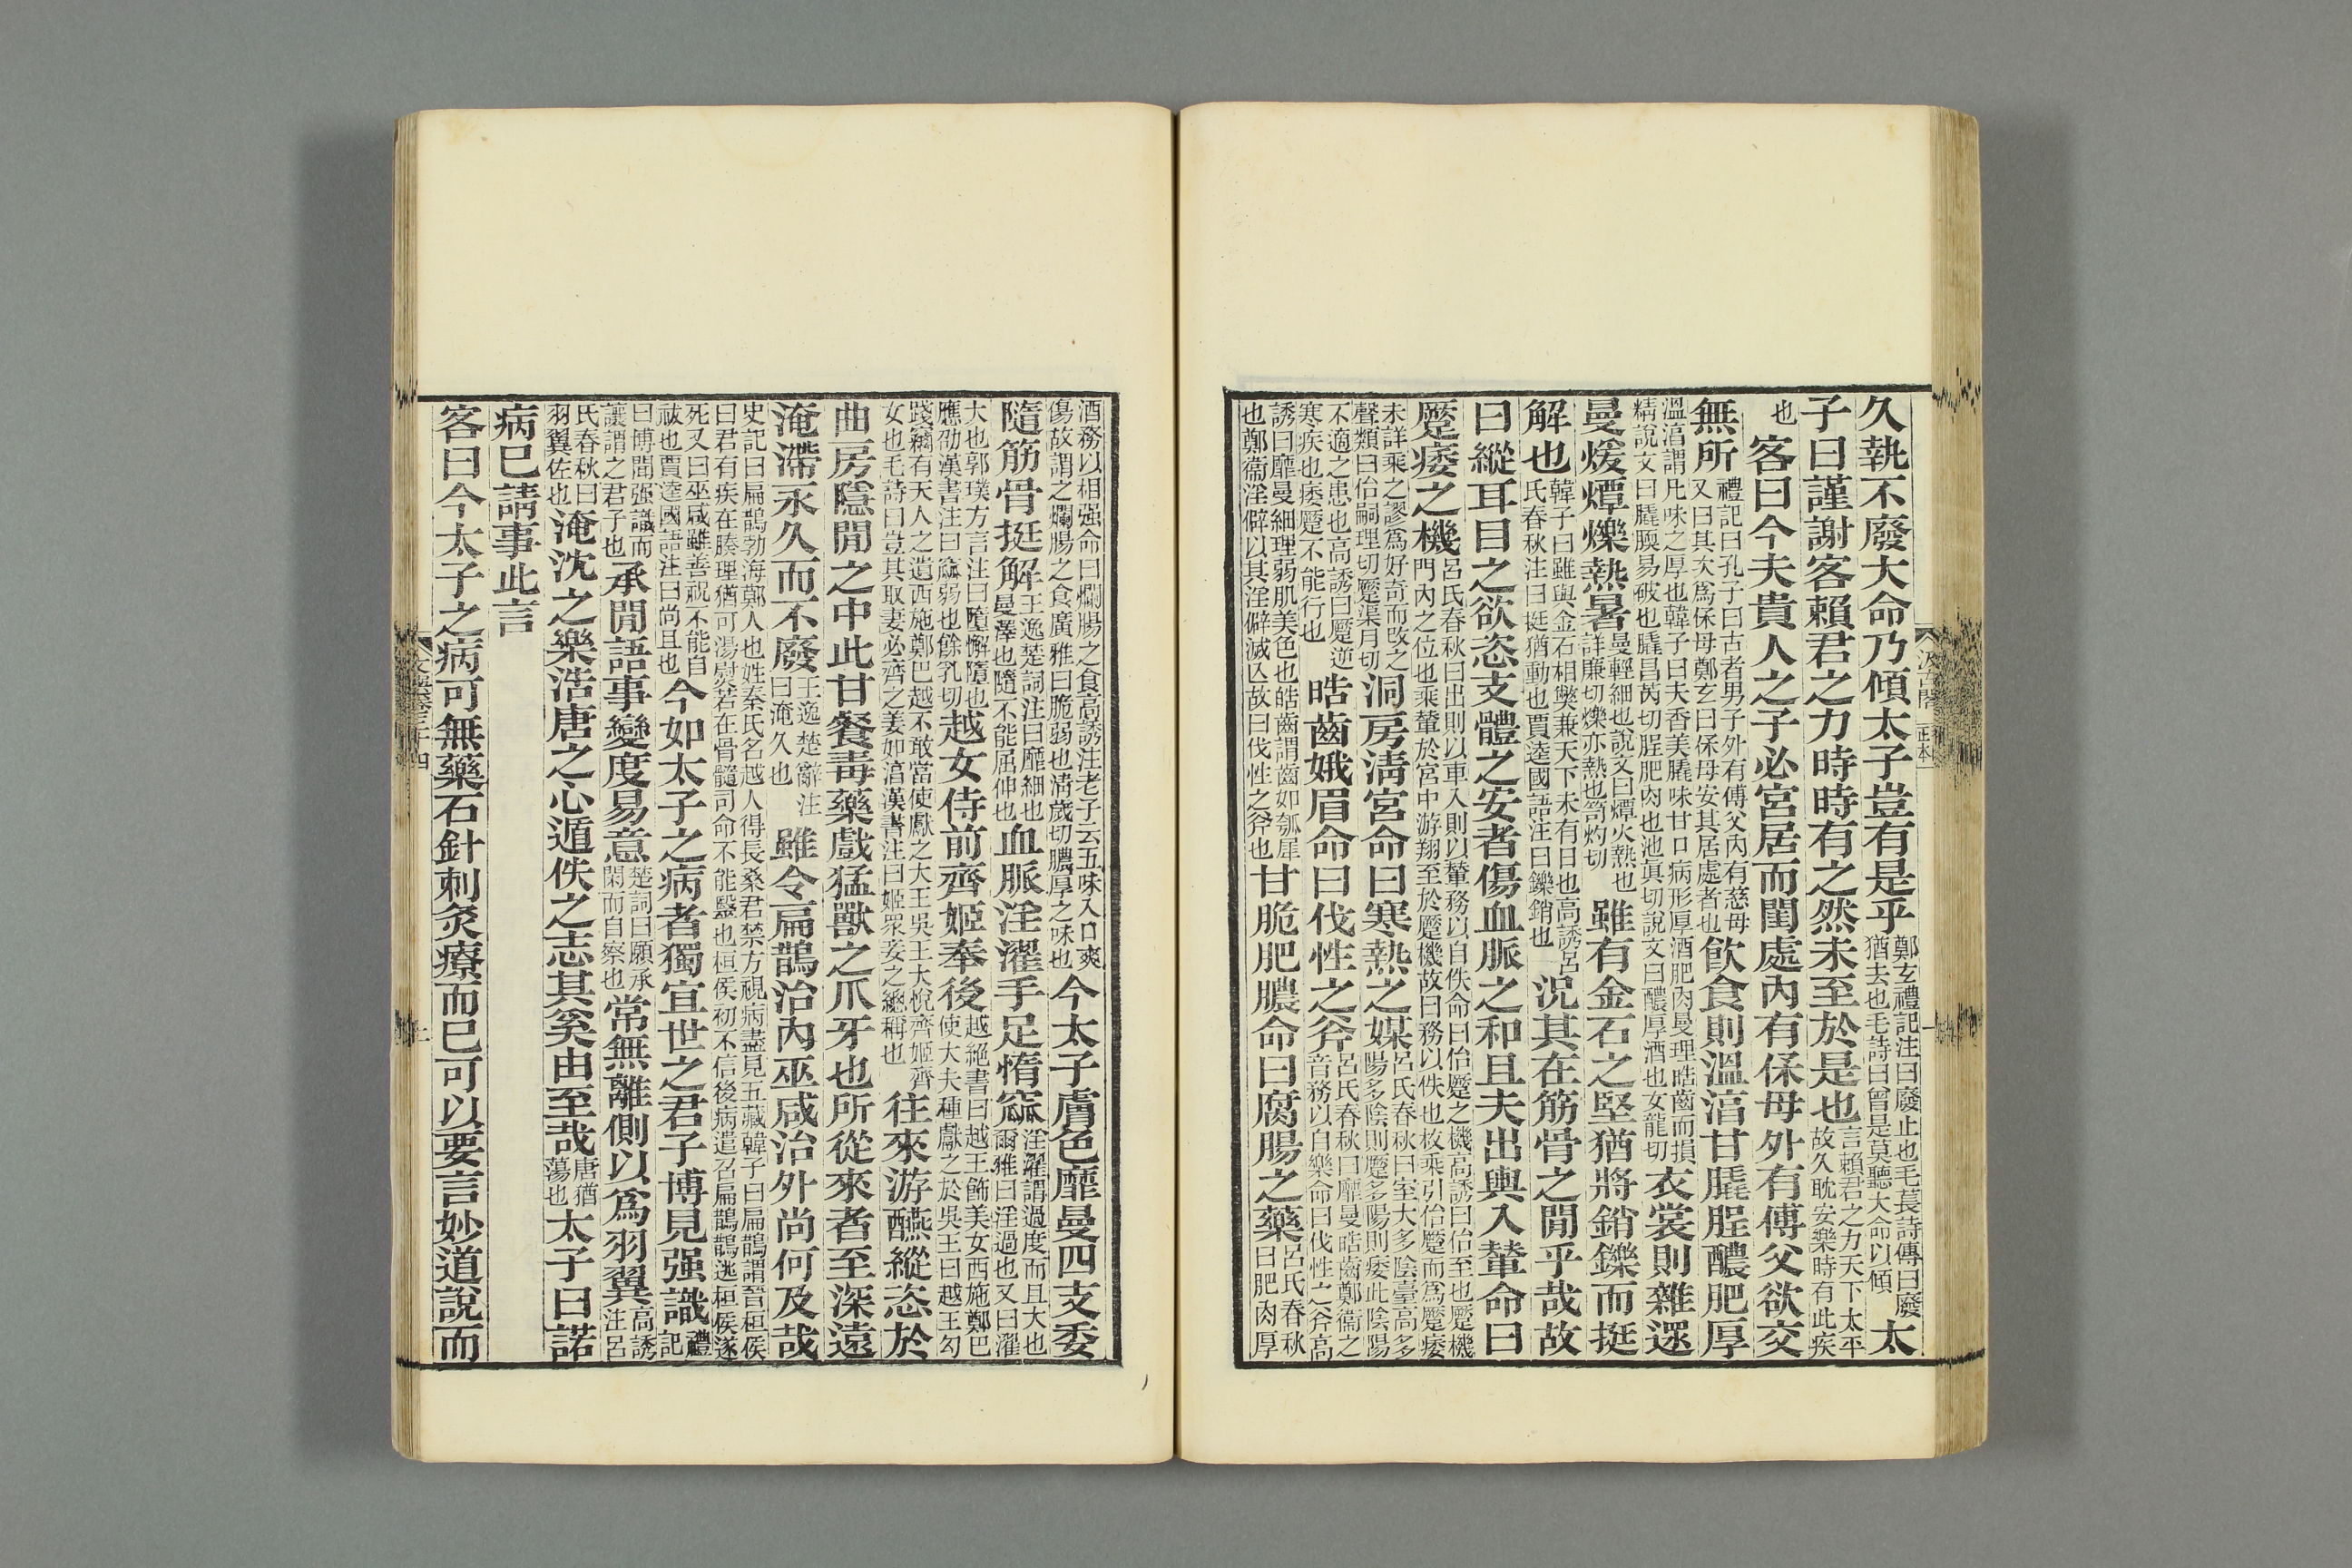 久執不廢大命乃傾太子豈有是乎鄭玄禮記注曰廢止也毛萇詩傳曰廢猶去也毛詩曰曾是莫聽大命以傾太
子曰謹謝客賴君之力時時有之然未至於是也言賴君之力天下太平故久耽安樂時有此疾
也客曰今夫貴人之子必宮居而閨處內有保母外有傅父欲交
無所禮記曰孔子曰古者男子外有傅父內有慈母又曰其次爲保母鄭玄曰保母安其居處者也飲食則溫淳甘膬脭醲肥厚
溫淳謂凡味之厚也韓子曰夫香美脆味甘口病形厚酒肥肉曼理晧齒而損精說文曰膬腝易破也膬昌芮切脭肥肉也池眞切說文曰醲厚酒也女龍切衣裳則雜遝
曼煖燂爍熱暑曼輕細也說文曰燂火熱也詳廉切爍亦熱也笥灼切雖有金石之堅猶將銷鑠而挺
解也韓子曰雖與金石相獘兼天下未有日也高誘呂氏春秋注曰挺猶動也賈逵國語注曰鑠銷也況其在筋骨之閒乎哉故
曰縱耳目之欲恣支體之安者傷血脈之和且夫出輿入輦命曰
蹷痿之機呂氏春秋曰出則以車入則以輦務以自佚命曰佁蹷之機高誘曰佁至也蹷機門內之位也乘輦於宮中游翔至於蹷機故曰務以佚也枚乘引佁蹷而爲蹷痿
未詳乘之謬爲好奇而改之聲類曰佁嗣理切蹷渠月切洞房淸宮命曰寒熱之媒呂氏春秋曰室大多陰臺高多陽多陰則蹷多陽則痿此陰陽
不適之患也高誘曰蹷逆寒疾也痿蹷不能行也晧齒娥眉命曰伐性之斧呂氏春秋曰靡曼晧齒鄭衞之音務以自樂命曰伐性之斧高
誘曰靡曼細理弱肌美色也晧齒謂齒如瓠犀也鄭衞淫僻以其淫僻滅亾故曰伐性之斧也甘脆肥膿命曰腐腸之藥呂氏春秋曰肥肉厚
酒務以相强命曰爛腸之食高誘注老子云五味入口爽傷故謂之爛腸之食廣雅曰脆弱也淸歲切膿厚之味也今太子膚色靡曼四支委
隨筋骨挺解王逸楚詞注曰靡細也曼澤也隨不能屈伸也血脈淫濯手足惰窳淫濯謂過度而且大也爾雅曰淫過也又曰濯
大也郭璞方言注曰墮懈墮也應劭漢書注曰窳弱也餘乳切越女侍前齊姬奉後越絕書曰越王飾美女西施鄭巴使大夫種獻之於吳王曰越王勾
踐竊有天人之遺西施鄭巴越不敢當使獻之大王吳王大悅齊姬齊女也毛詩曰豈其取妻必齊之姜如淳漢書注曰姬眾妾之緫稱也往來游醼縱恣於
曲房隱閒之中此甘餐毒藥戲猛獸之爪牙也所從來者至深遠
淹滯永久而不廢王逸楚辭注曰淹久也雖令扁鵲治內巫咸治外尚何及哉
史記曰扁鵲勃海鄭人也姓秦氏名越人得長桑君禁方視病盡見五藏韓子曰扁鵲謂晉桓侯曰君有疾在腠理猶可湯熨若在骨髓司命不能醫也桓侯初不信後病遣召扁鵲鵲逃桓侯遂
死又曰巫咸雖善祝不能自祓也賈逵國語注曰尚且也今如太子之病者獨宜世之君子博見强識禮記
曰博聞强識而讓謂之君子也承閒語事變度易意楚詞曰願承閑而自察也常無離側以爲羽翼高誘注呂
氏春秋曰羽翼佐也淹沈之樂浩唐之心遁佚之志其奚由至哉唐猶蕩也太子曰諾
病已請事此言
客曰今太子之病可無藥石針刺灸療而已可以要言妙道說而